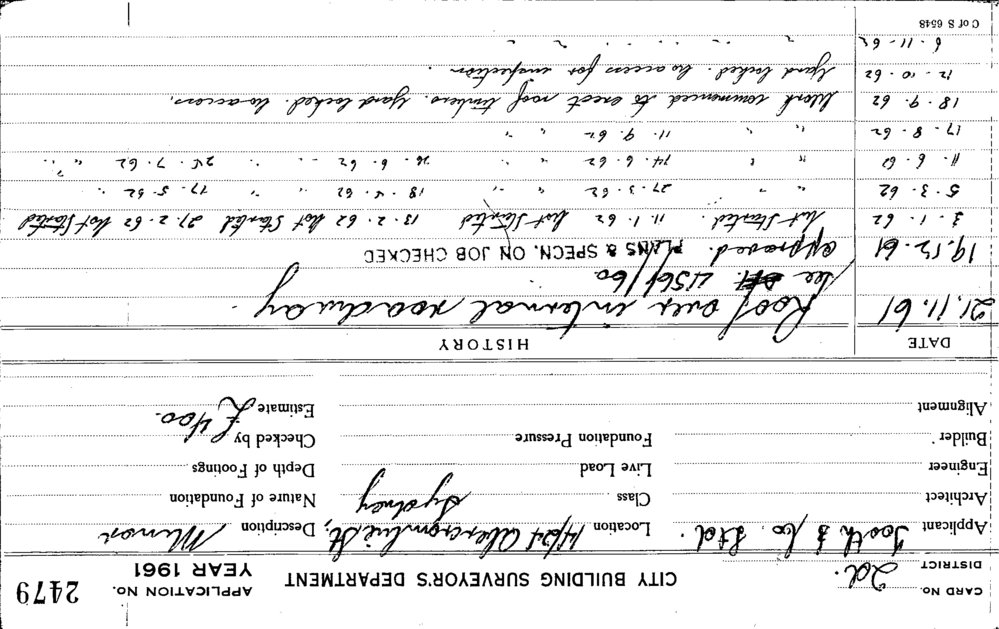 CARD NO.
DISTRICT 2d.
CITY BUILDING SURVEYOR'S DEPARTMENT
APPLICATION NO. 2479
YEAR 1961
Applicant Tooth & Co. Ltd. Location 14/24 Abercrombie St, Description Minor
Architect Class Sydney Nature of Foundation
Engineer Live Load Depth of Footings
Builder Foundation Pressure Checked by
Alignment Estimate £400.
DATE HISTORY
21.11.61 Roof over internal roadway.
See 1561/60
19.12.61 approved. PLANS & SPECN. ON JOB CHECKED
3.1.62 Not Started. 11.1.62 Not Started 13.2.62 Not Started 27.2.62 Not Started
5.3.62 " " 27.3.62 " " 18.4.62 " " 17.5.62 "
11.6.62 " " 14.6.62 " " 26.6.62 " " 25.7.62 " "
17.8.62 " " 11.9.62 " "
18.9.62 Work commenced to erect roof timbers. Yard locked. No access.
12.10.62 Yard locked. No access for inspection.
6.11.62 " " " " " "
C of S 6548